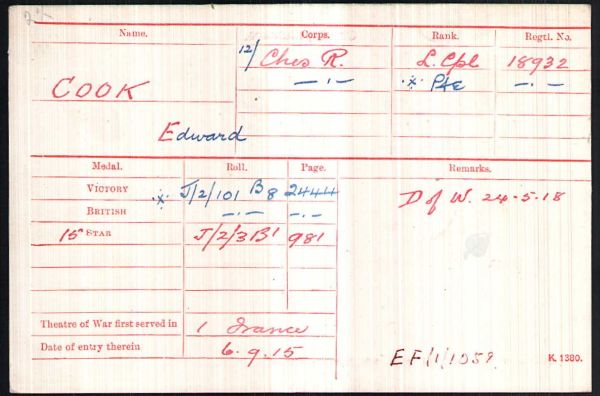 Name. Corps. Rank. Regtl. No.
12/ Ches R. L. Cpl 18932
COOK — " — ·x· Pte — " —
Edward
Medal. Roll. Page. Remarks.
VICTORY ·x· J/2/101 B8 2444 D of W. 24-5-18
BRITISH — " — — " —
15 STAR J/2/3 B1 981
Theatre of War first served in 1 France
Date of entry therein 6.9.15
EF/1/ K. 1380.